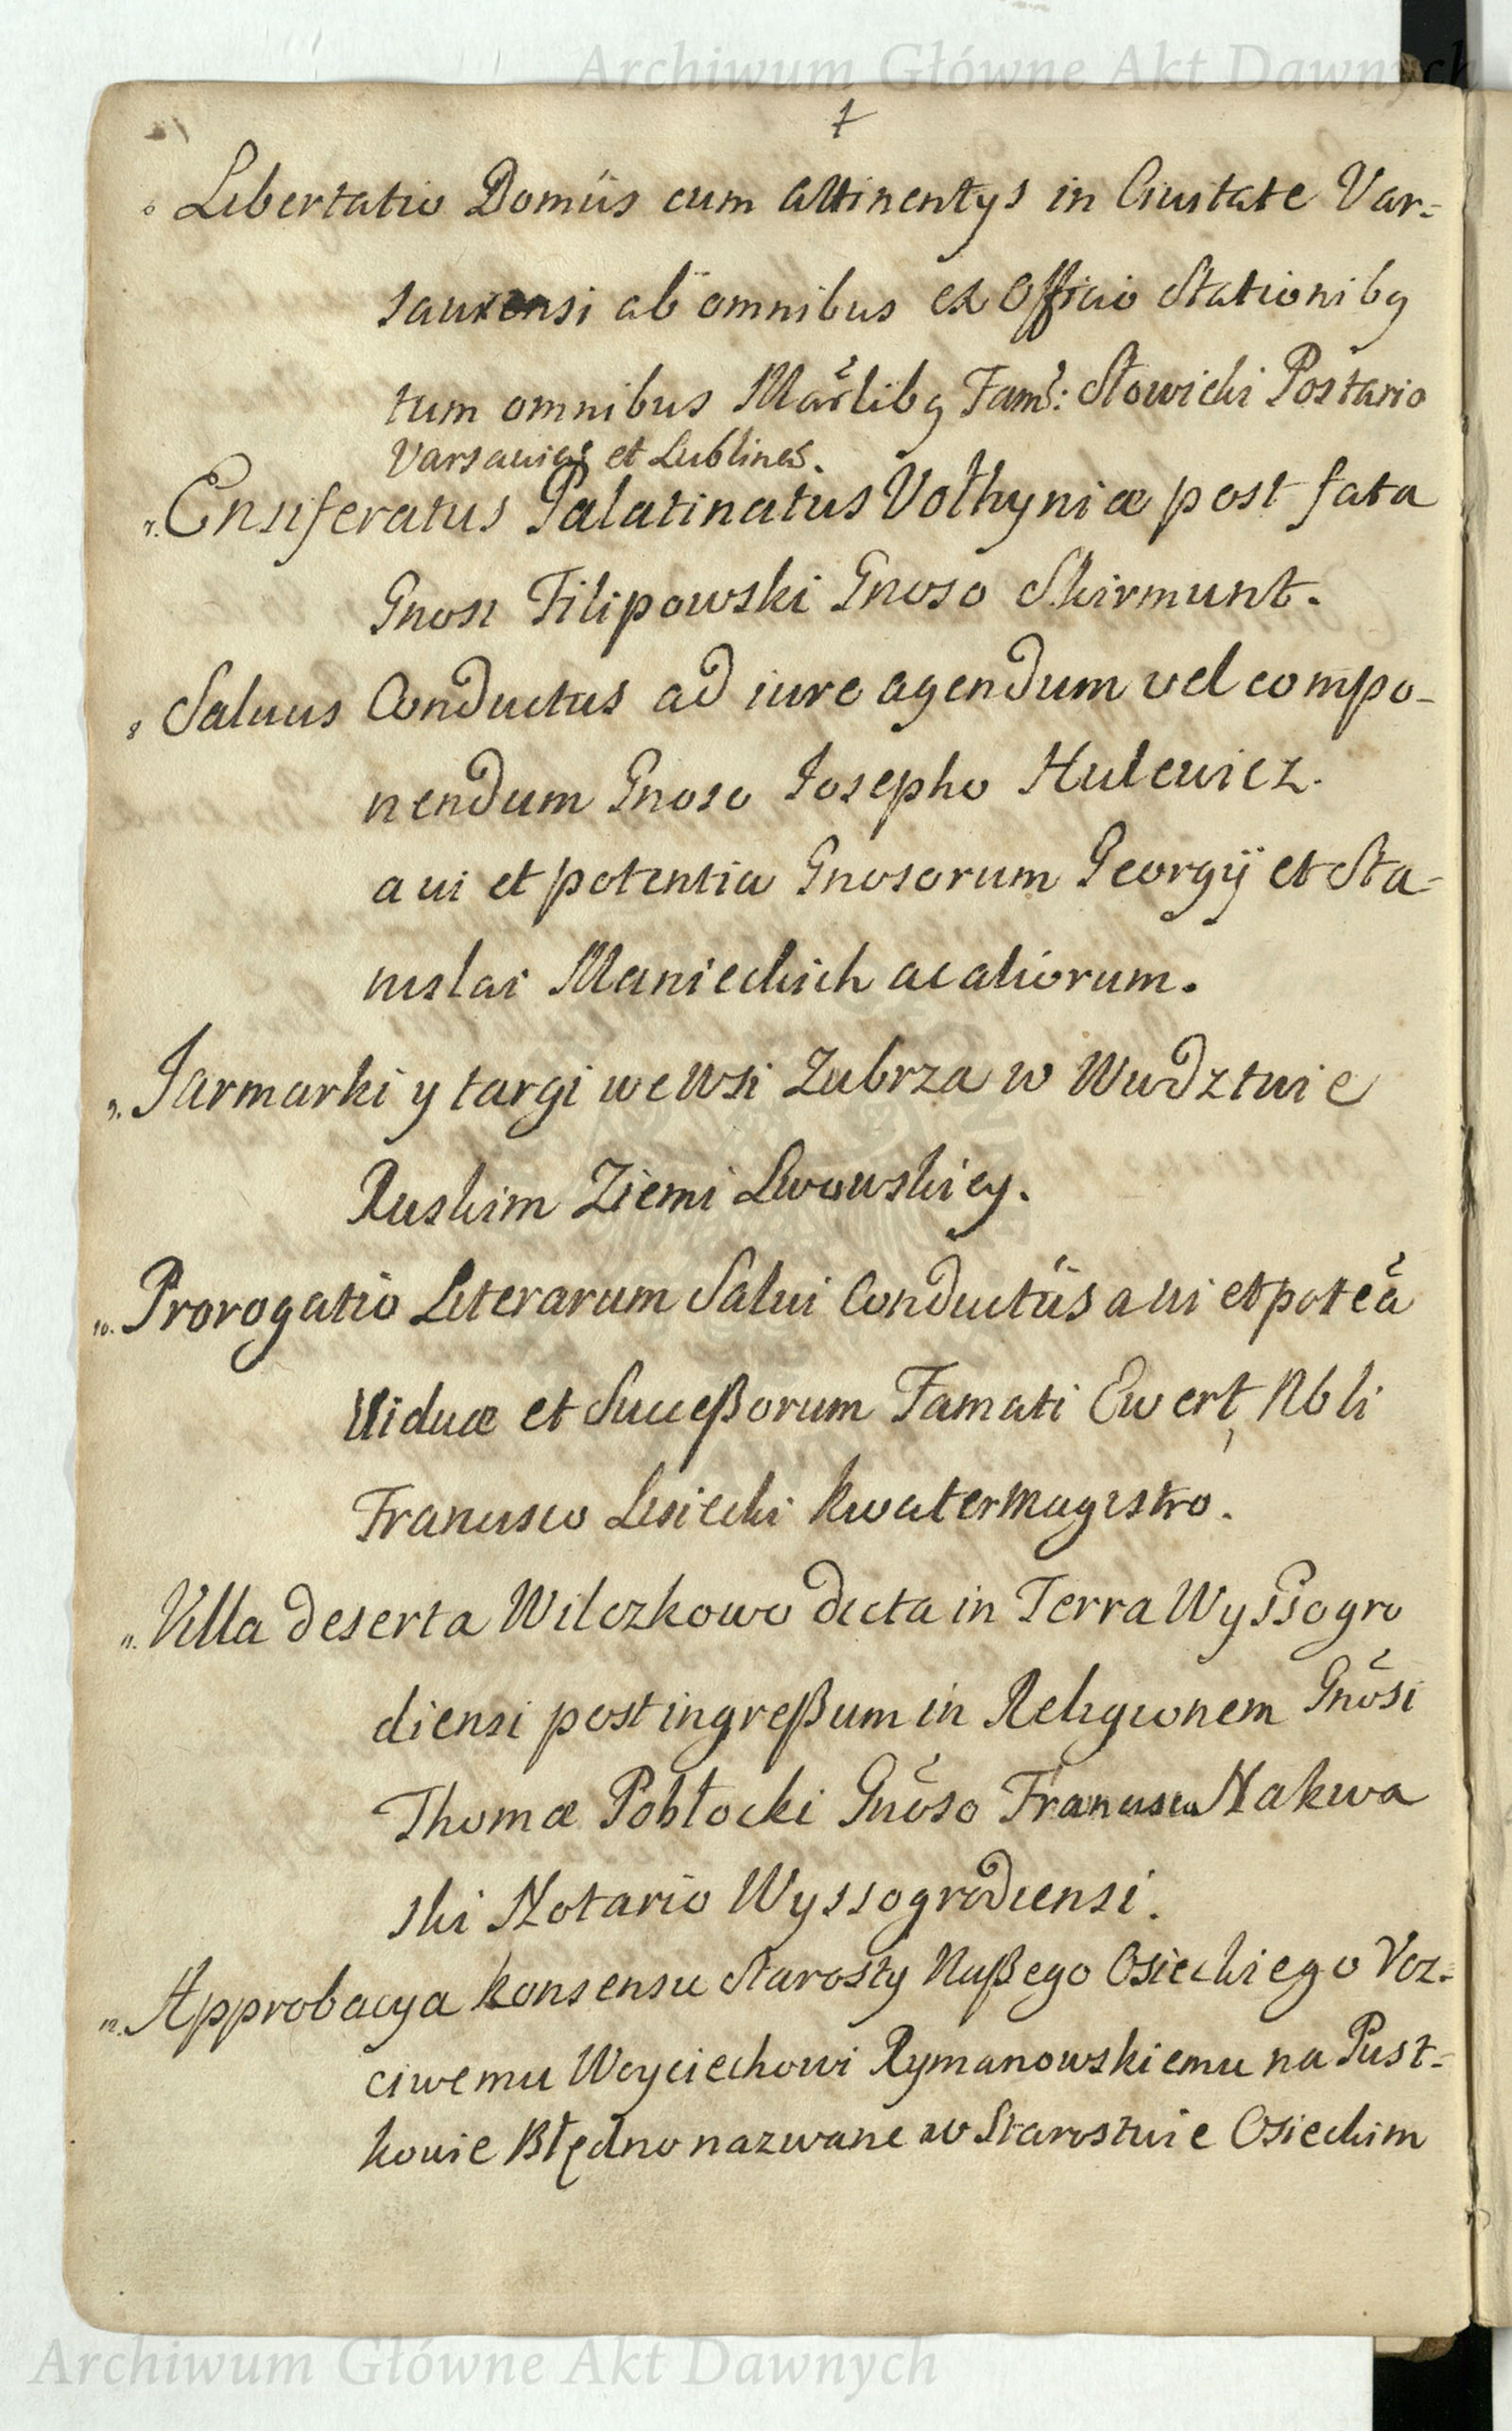 Archiwum Główne Akt Dawnych
7
6 Libertatio Domûs cum Attinentÿs in Ciuitate Var-
sauiensi ab omnibus ex Officio Stationibq
tum omnibus Mãrlibq Famt: Słowicki Postario
Varsauien et Lublinen.
7. Ensiferatus Palatinatus Vołhyniæ post fata
Gnosi Filipowski Gnoso Skirmunt.
8 Saluus Conductus ad iure agendum vel compo-
nendum Gnoso Josepho Hulewicz.
a ui et potentia Gnosorum Georgÿ et Sta-
nislai Manieckich ac aliorum.
9. Jarmarki y targi we Wsi Zubrza w Wudztwie
Ruskim Ziemi Lwowskiey.
10. Prorogatio Literarum Salui Conductûs a ui et poteã
Viduæ et Suceßorum Famati Ewert, Nbli
Francisco Lisiecki Kwatermagistro.
11. Villa deserta Wilczkowo dicta in Terra Wyssogro
diensi post ingreßum in Religionem Gnõsi
Thomæ Pobłocki Gnõso Francisco Nakwa
ski Notario Wyssogrodiensi.
12. Approbacya konsensu Starosty Naßego Osieckiego Vcz-
ciwemu Woyciechowi Rymanowskiemu na Pust-
kowie Błędno nazwane w Starostwie Osieckim
Archiwum Główne Akt Dawnych